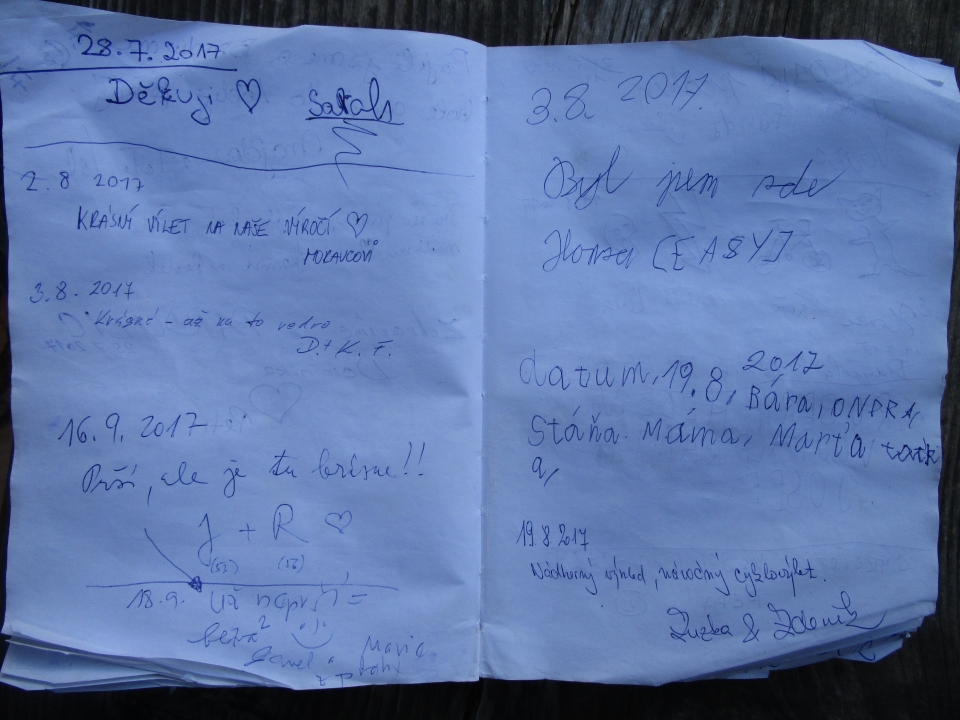 28.7.2017
Děkuji ♡ Sarah
2.8 2017
KRÁSNÝ VÝLET NA NAŠE VÝROČÍ ♡
MORAVCOVI
3.8.2017
Krásné - až na to vedro
D.+ K. F.
16.9.2017
Prší, ale je tu krásne!!
J + R ♡
18.9. Už neprší =
Pavel
Marie
z Prahy
3.8. 2017.
Byl jsem zde
Honza [EASY]
datum, 19.8, 2017
Bára, ONDRA,
Stáňa. Máma, Marťa tatk
a,
19 8 2017
Nádherný výhled, náročný cyklovýlet.
Zuzka & Zdeněk